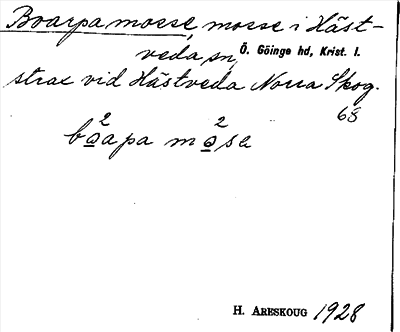 Boarpamosse, mosse i Häst-
veda sn, Ö. Göinge hd, Krist. l.
strax vid Hästveda Norra Skog.
68
2 2
boapa mose
H. ARESKOUG 1928